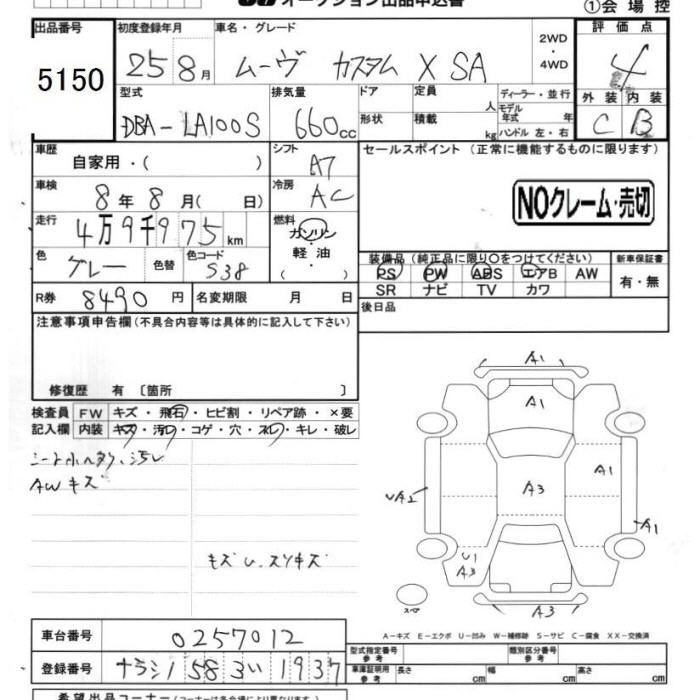 オークション出品申込書
①会場控
出品番号 5150
初度登録年月 25 8月
車名・グレード ムーヴ カスタム X SA
2WD・4WD
評価点 4
外装 C 内装 B
型式 DBA-LA100S
排気量 660cc
ドア 形状
定員 人
積載 kg
ディーラー・並行
モデル年式 年
ハンドル 左・右
車歴 自家用・( )
シフト AT
セールスポイント (正常に機能するものに限ります)
車検 8年 8月( 日)
冷房 AC
NOクレーム・売切
走行 4万9千975km
燃料 ガソリン・軽油・( )
色 グレー 色替 色コード S38
装備品 (純正品に限り○をつけてください)
PS PW ABS エアB AW
SR ナビ TV カワ
新車保証書 有・無
R券 8490円
名変期限 月 日
後日品
注意事項申告欄 (不具合内容等は具体的に記入して下さい)
修復歴 有 〔箇所 〕
検査員記入欄
FW キズ・飛石・ヒビ割・リペア跡・×要
内装 キズ・汚れ・コゲ・穴・スレ・キレ・破レ
AWキズ
キズU.スリキズ
A1
A1
A1
A3
UA2
A1
U1
A3
A3
スペア
A-キズ E-エクボ U-凹み W-補修跡 S-サビ C-腐食 XX-交換済
車台番号 0257012
登録番号 ナラシノ 58 3い 1937
型式指定番号 参考
類別区分番号 参考
車庫証明用 参考 長さ cm 幅 cm 高さ cm
希望出品コーナー (コーナーは各会場により異なります)